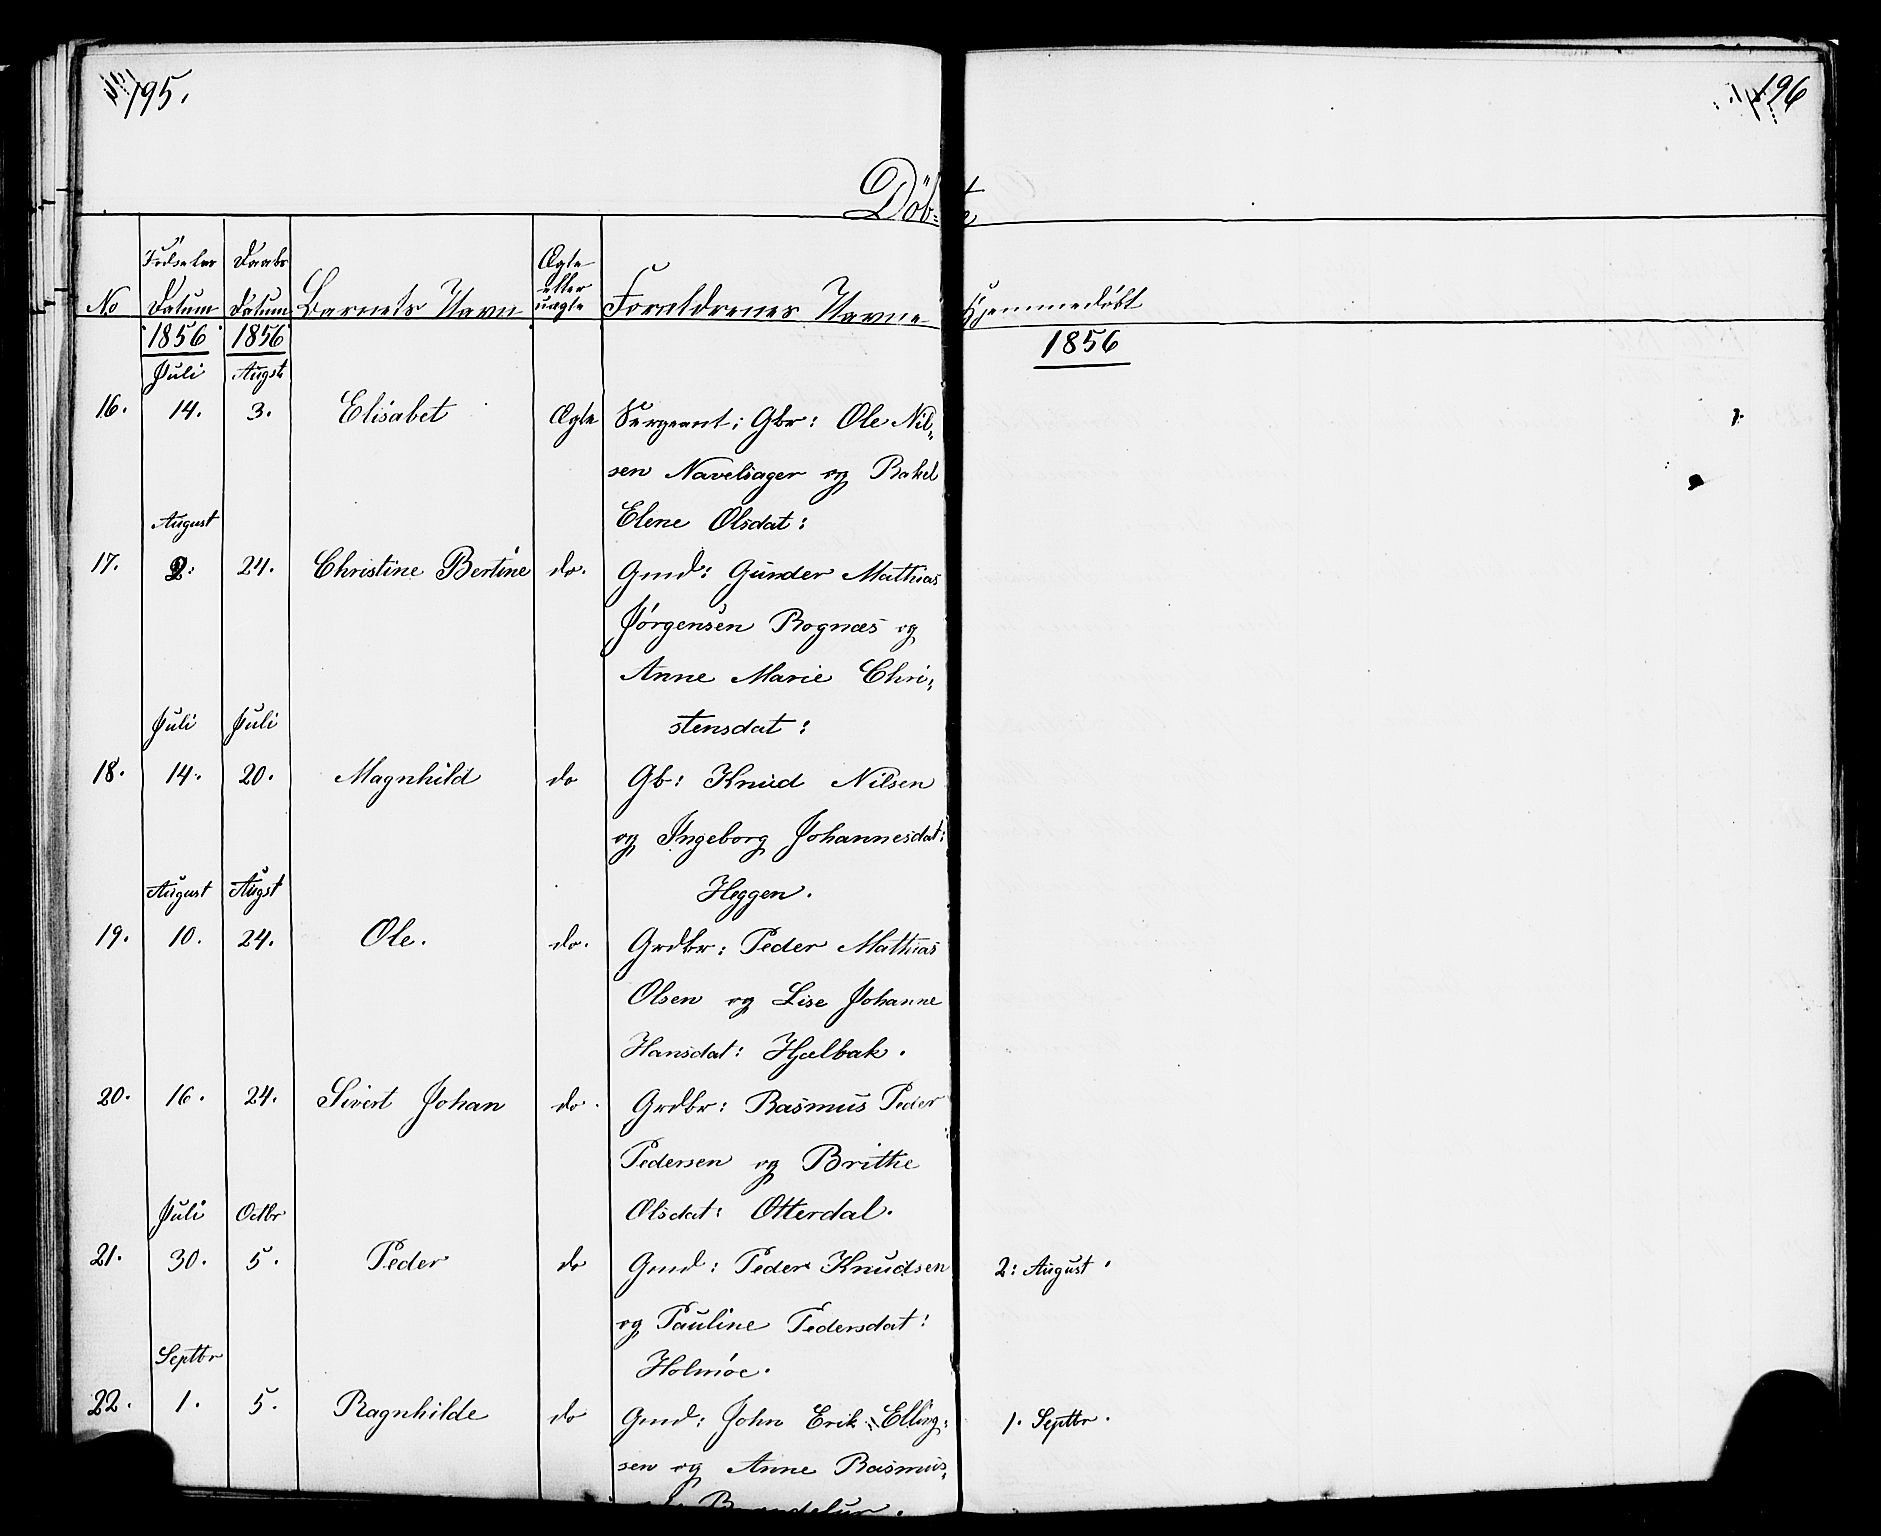 195.
196
Döbte
No
Födselsr Datum
Daabs Datum
Barnets Navn
Ægte eller uægte
Foreldrenes Navne
Hjemmedöbt
1856 1856 1856
Juli Augst
16. 14. 3. Elisabet Ægte Sergeant: Gbr: Ole Nil„
sen Navelsager og Rakel
August Elene Olsdat:
17. 2. 24. Christine Bertine do. Gmd: Gunder Mathias
Jørgensen Rognæs og
Anne Marie Chri„
Juli Juli stensdat:
18. 14. 20. Magnhild do Gb: Knud Nilsen
og Ingeborg Johannesdat:
August Augst Heggen.
19. 10. 24. Ole. do. Grdbr: Peder Mathias
Olsen og Lise Johanne
Hansdat: Hjelbak.
20. 16. 24. Sivert Johan do. Grdbr: Rasmus Peder
Pedersen og Brithe
Juli Octbr Olsdat: Otterdal.
21. 30. 5. Peder do Gmd: Peder Knudsen 2: August.
og Pauline Pedersdat:
Septbr Holmøe.
22. 1. 5. Ragnhilde do Gmd: John Erik Elling: 1. Septbr.
sen og Anne Rasmus„